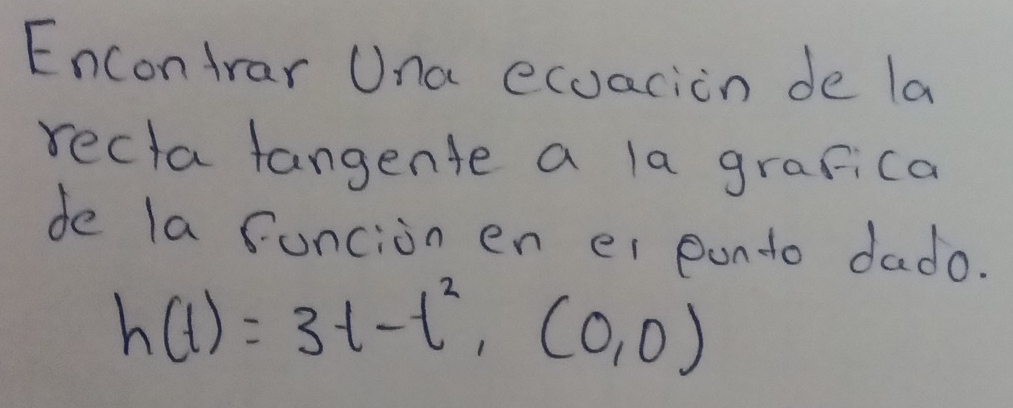 Encontrar Una ecuación de la
recta tangente a la grafica
de la función en el punto dado.
h(t) = 3t - t², (0,0)